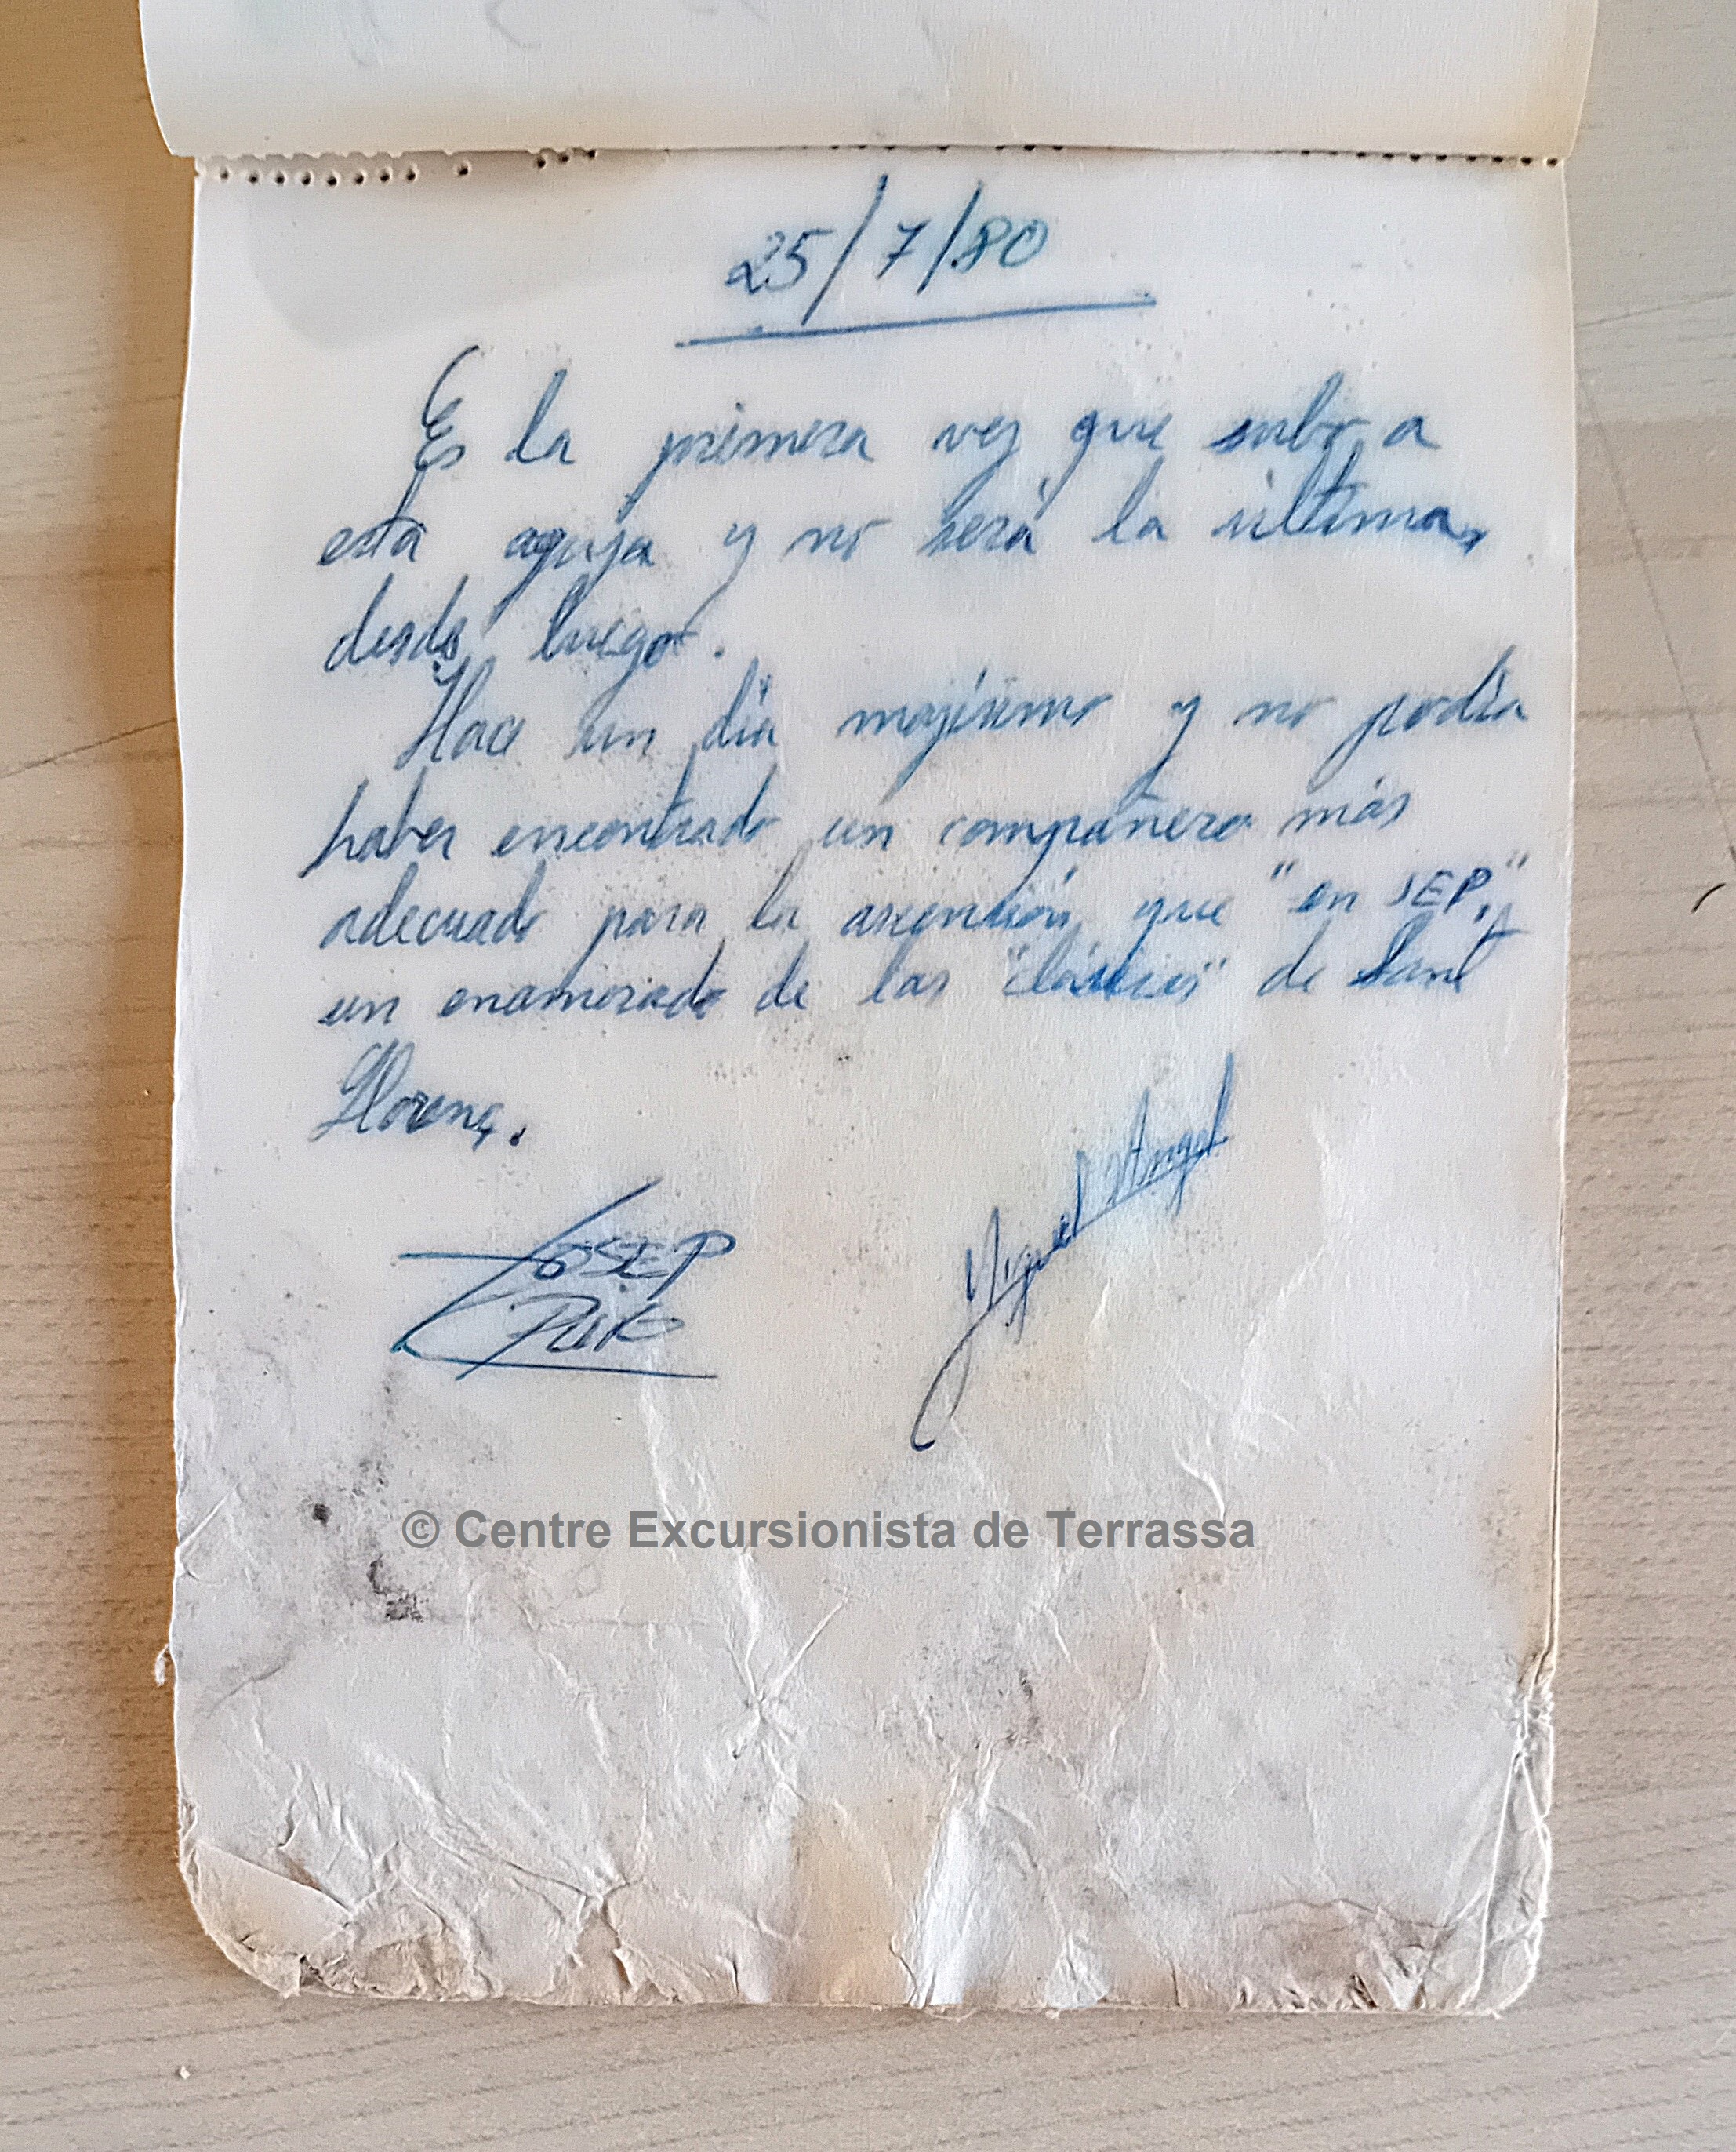 25/7/80
Es la primera vez que subo a
esta aguja y no será la última,
desde luego.
Hace un día majísimo y no podía
haber encontrado un compañero más
adecuado para la ascensión que "en SEP,"
un enamorado de las "clásicas" de Sant
Llorenç.
Miguel Angel
JOSEP
© Centre Excursionista de Terrassa